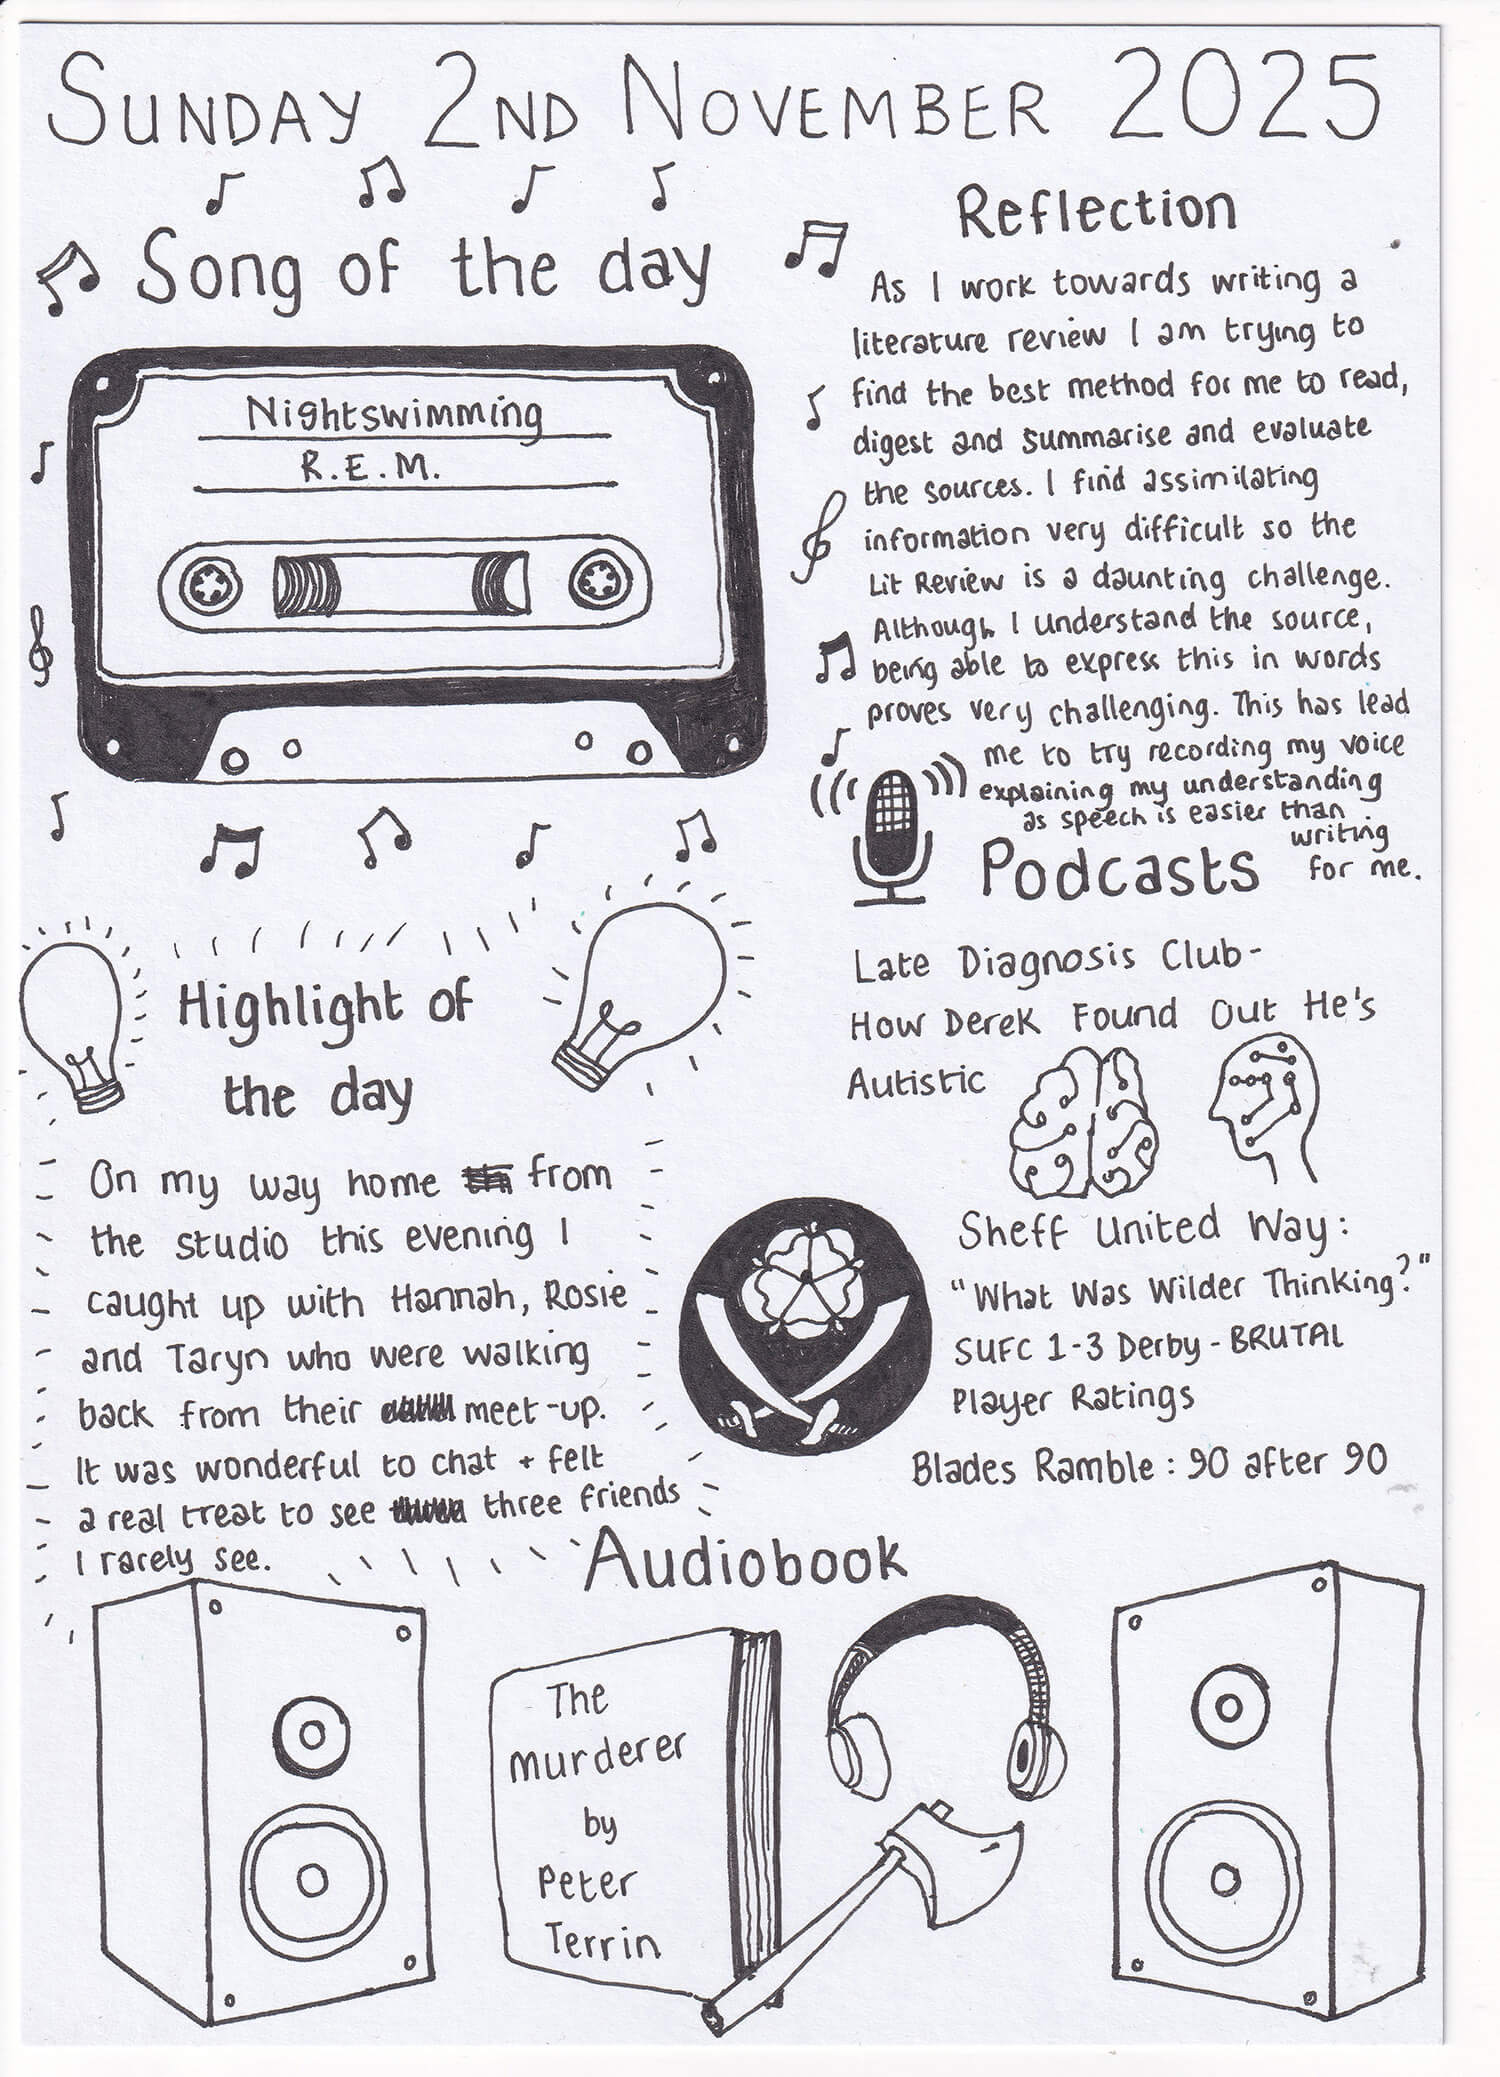 SUNDAY 2ND NOVEMBER 2025
Song of the day
Nightswimming
R.E.M.
Reflection
As I work towards writing a
literature review I am trying to
find the best method for me to read,
digest and summarise and evaluate
the sources. I find assimilating
information very difficult so the
Lit Review is a daunting challenge.
Although I understand the source,
being able to express this in words
proves very challenging. This has lead
me to try recording my voice
explaining my understanding
as speech is easier than
writing
for me.
Highlight of
the day
On my way home from
the studio this evening I
caught up with Hannah, Rosie
and Taryn who were walking
back from their meet-up.
It was wonderful to chat + felt
a real treat to see three friends
I rarely see.
Podcasts
Late Diagnosis Club-
How Derek Found Out He's
Autistic
Sheff United Way:
"What Was Wilder Thinking?"
SUFC 1-3 Derby - BRUTAL
Player Ratings
Blades Ramble: 90 after 90
Audiobook
The
murderer
by
Peter
Terrin